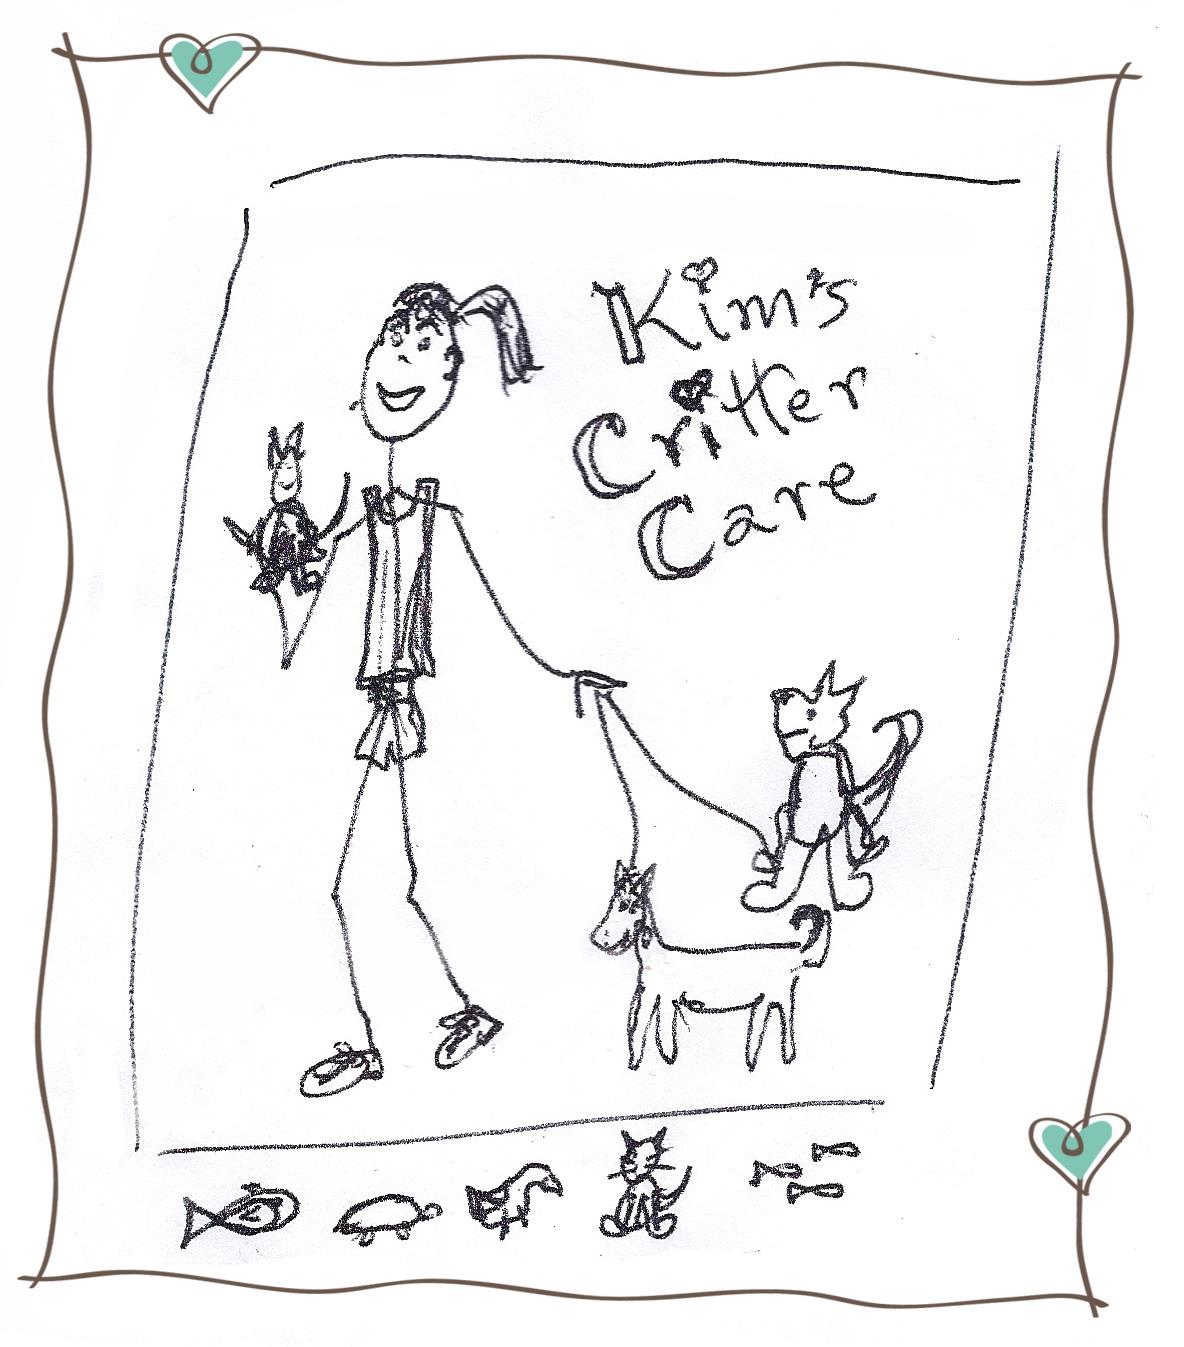 Kim's
Critter
Care